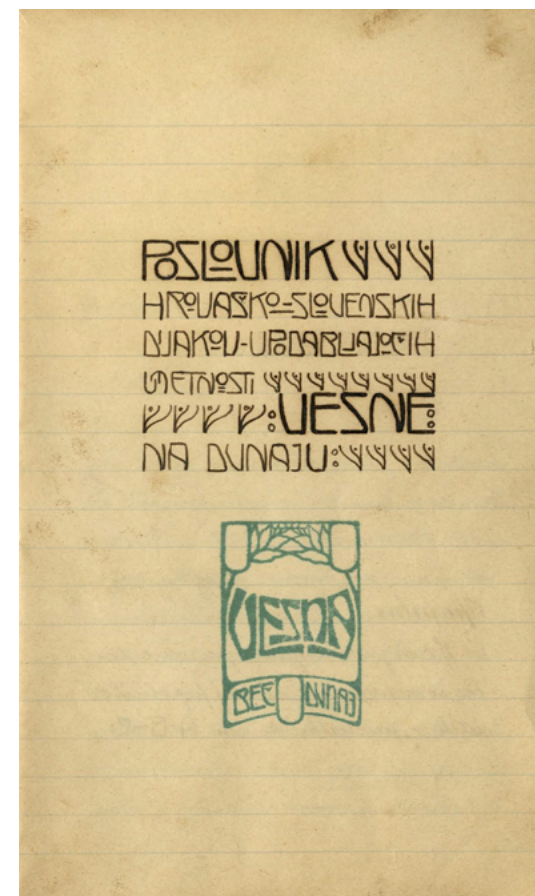 POSLOVNIK
HRVAŠKO-SLOVENSKIH
DIJAKOV-UPODABLJAJOČIH
UMETNOSTI
:VESNE:
NA DUNAJU:
VESNA
BEČ DUNAJ